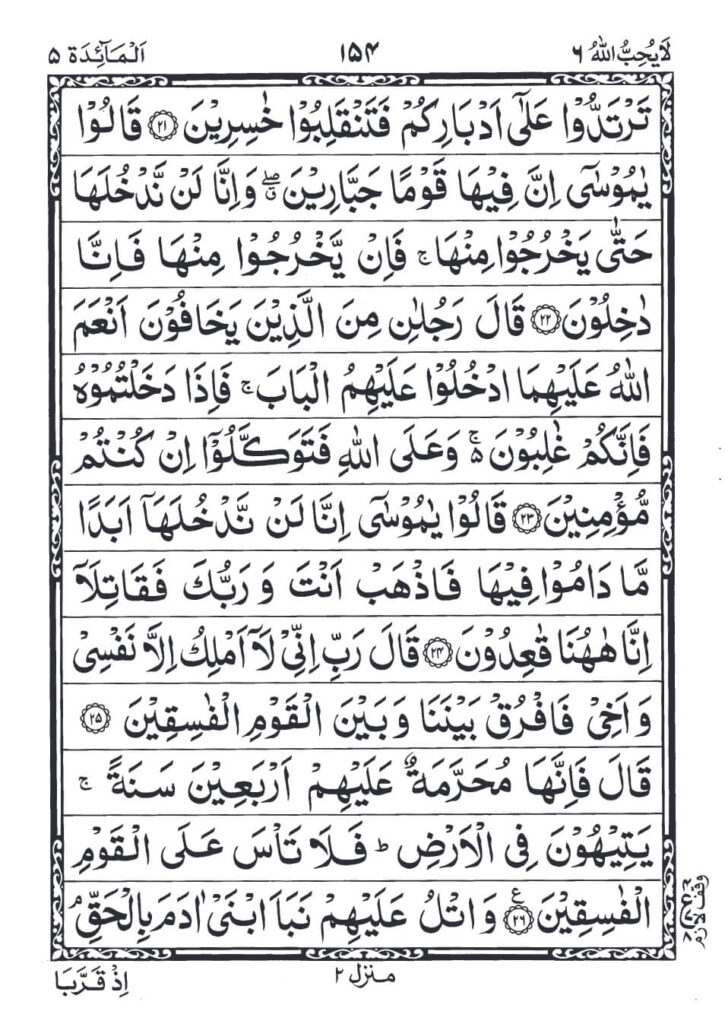 لَا يُحِبُّ اللهُ ٦
١٥٤
اَلْمَآئِدَة ٥
تَرْتَدُّوْا عَلٰٓى اَدْبَارِكُمْ فَتَنْقَلِبُوْا خٰسِرِيْنَ ٢١ قَالُوْا
يٰمُوْسٰٓى اِنَّ فِيْهَا قَوْمًا جَبَّارِيْنَ ۖۗ وَاِنَّا لَنْ نَّدْخُلَهَا
حَتّٰى يَخْرُجُوْا مِنْهَا ۚ فَاِنْ يَّخْرُجُوْا مِنْهَا فَاِنَّا
دٰخِلُوْنَ ٢٢ قَالَ رَجُلٰنِ مِنَ الَّذِيْنَ يَخَافُوْنَ اَنْعَمَ
اللهُ عَلَيْهِمَا ادْخُلُوْا عَلَيْهِمُ الْبَابَ ۚ فَاِذَا دَخَلْتُمُوْهُ
فَاِنَّكُمْ غٰلِبُوْنَ ۵ۚ وَعَلَى اللهِ فَتَوَكَّلُوْٓا اِنْ كُنْتُمْ
مُّؤْمِنِيْنَ ٢٣ قَالُوْا يٰمُوْسٰٓى اِنَّا لَنْ نَّدْخُلَهَآ اَبَدًا
مَّا دَامُوْا فِيْهَا فَاذْهَبْ اَنْتَ وَرَبُّكَ فَقَاتِلَآ
اِنَّا هٰهُنَا قٰعِدُوْنَ ٢٤ قَالَ رَبِّ اِنِّيْ لَآ اَمْلِكُ اِلَّا نَفْسِيْ
وَاَخِيْ فَافْرُقْ بَيْنَنَا وَبَيْنَ الْقَوْمِ الْفٰسِقِيْنَ ٢٥
قَالَ فَاِنَّهَا مُحَرَّمَةٌ عَلَيْهِمْ اَرْبَعِيْنَ سَنَةً ۚ
يَتِيْهُوْنَ فِي الْاَرْضِ ؕ فَلَا تَاْسَ عَلَى الْقَوْمِ
الْفٰسِقِيْنَ ٢٦ ع وَاتْلُ عَلَيْهِمْ نَبَاَ ابْنَيْ اٰدَمَ بِالْحَقِّ ۘ
وقف لازم
منزل ٢
اِذْ قَرَّبَا